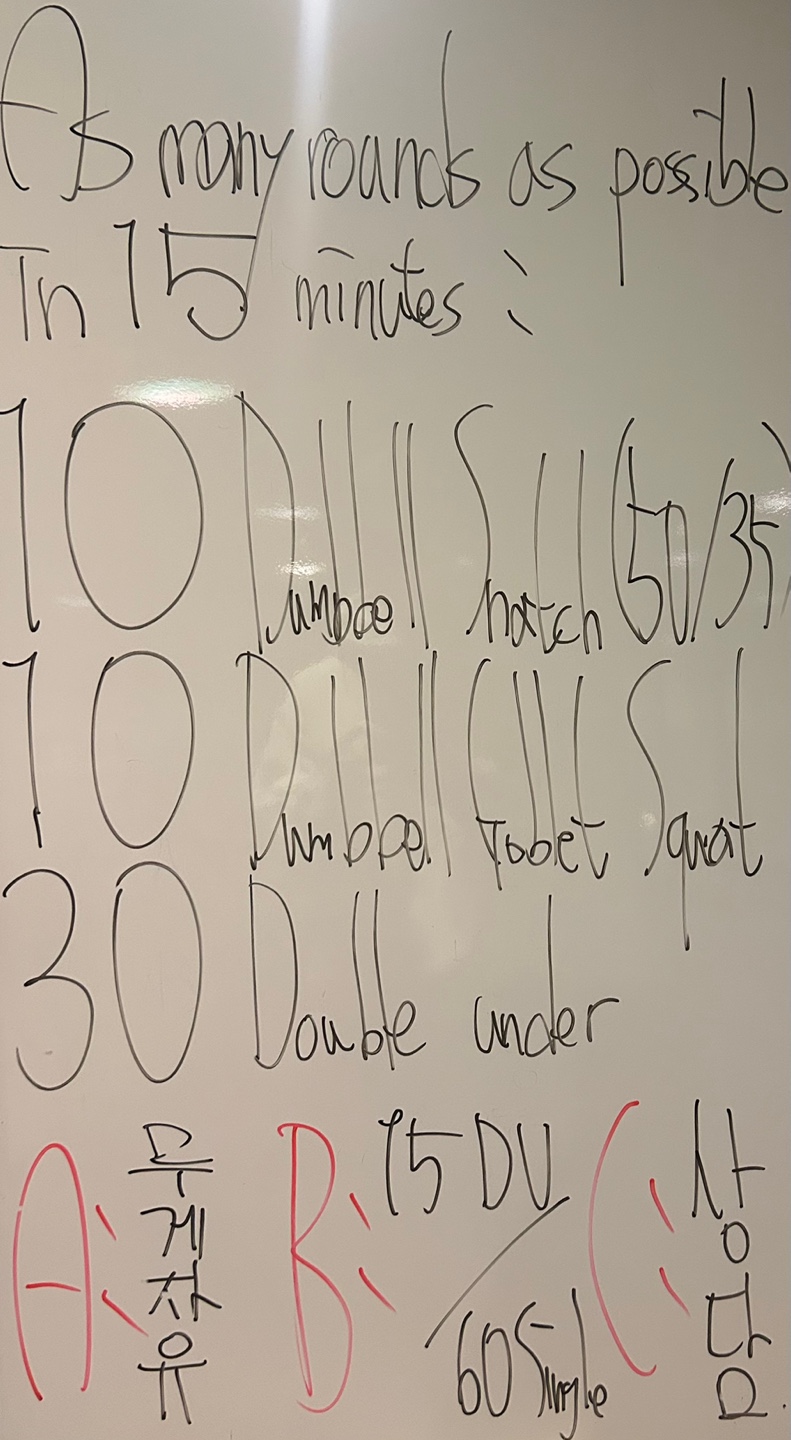 As many rounds as possible
In 15 minutes:
10 Dumbbell Snatch (50/35)
10 Dumbbell Goblet Squat
30 Double under
A: 무게자유 B: 15 DU/60 Single C: 상담